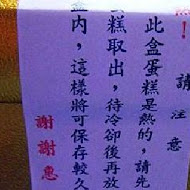 請注意
此盒蛋糕是熱的，請先
蛋糕取出，待冷卻後再放
盒內，這樣將可保存較久
謝謝惠